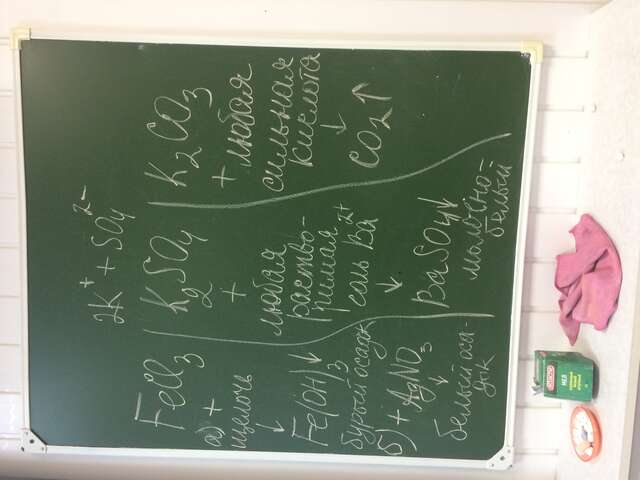 2K⁺ + SO₄²⁻
FeCl₃
а) +
щелочь
↓
Fe(OH)₃↓
бурый осадок
б) + AgNO₃
↓
белый оса-
док
K₂SO₄
+
любая
раство-
римая
соль Ba²⁺
↓
BaSO₄↓
молочно-
белый
K₂CO₃
+ любая
сильная
кислота
↓
CO₂↑
МЕЛ